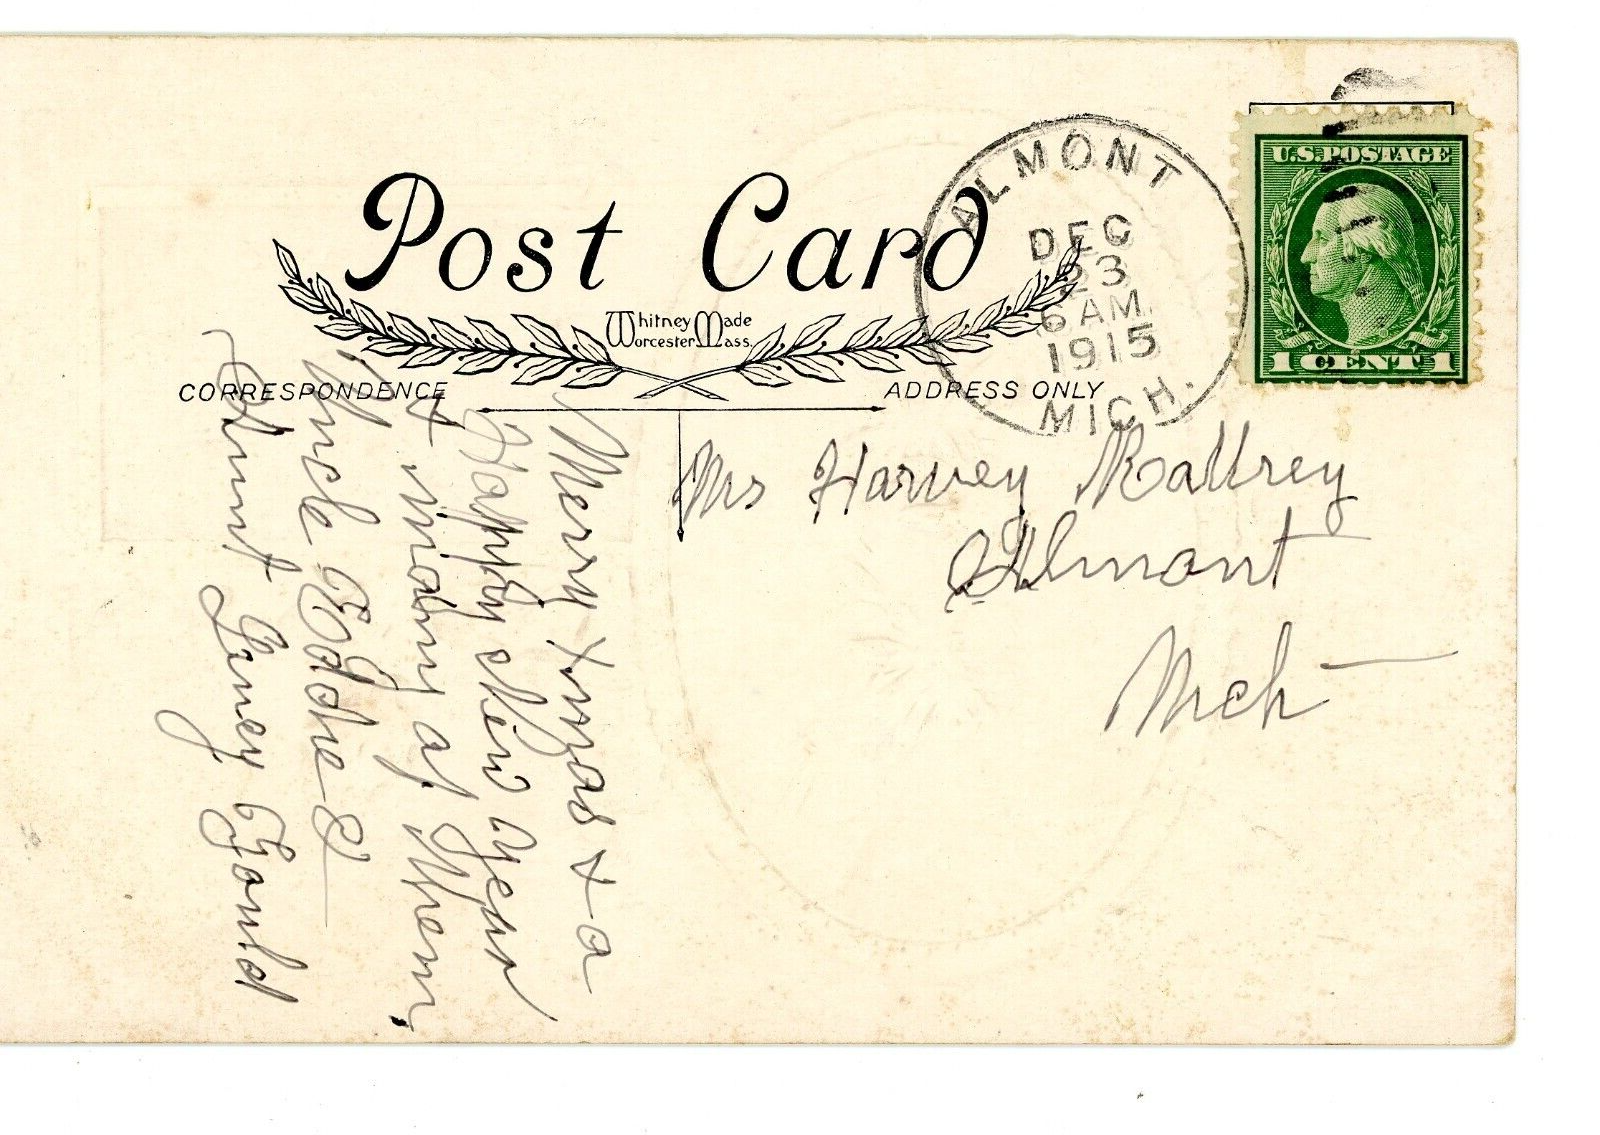 Post Card
Whitney Made
Worcester Mass.
CORRESPONDENCE
ADDRESS ONLY
ALMONT
DEC
23
6 AM
1915
MICH.
U.S. POSTAGE
1 CENT 1
Merry Xmas & a
Happy New Year
& many of them.
Uncle Eddie &
Aunt Gould
Mrs Harvey
Almont
Mich